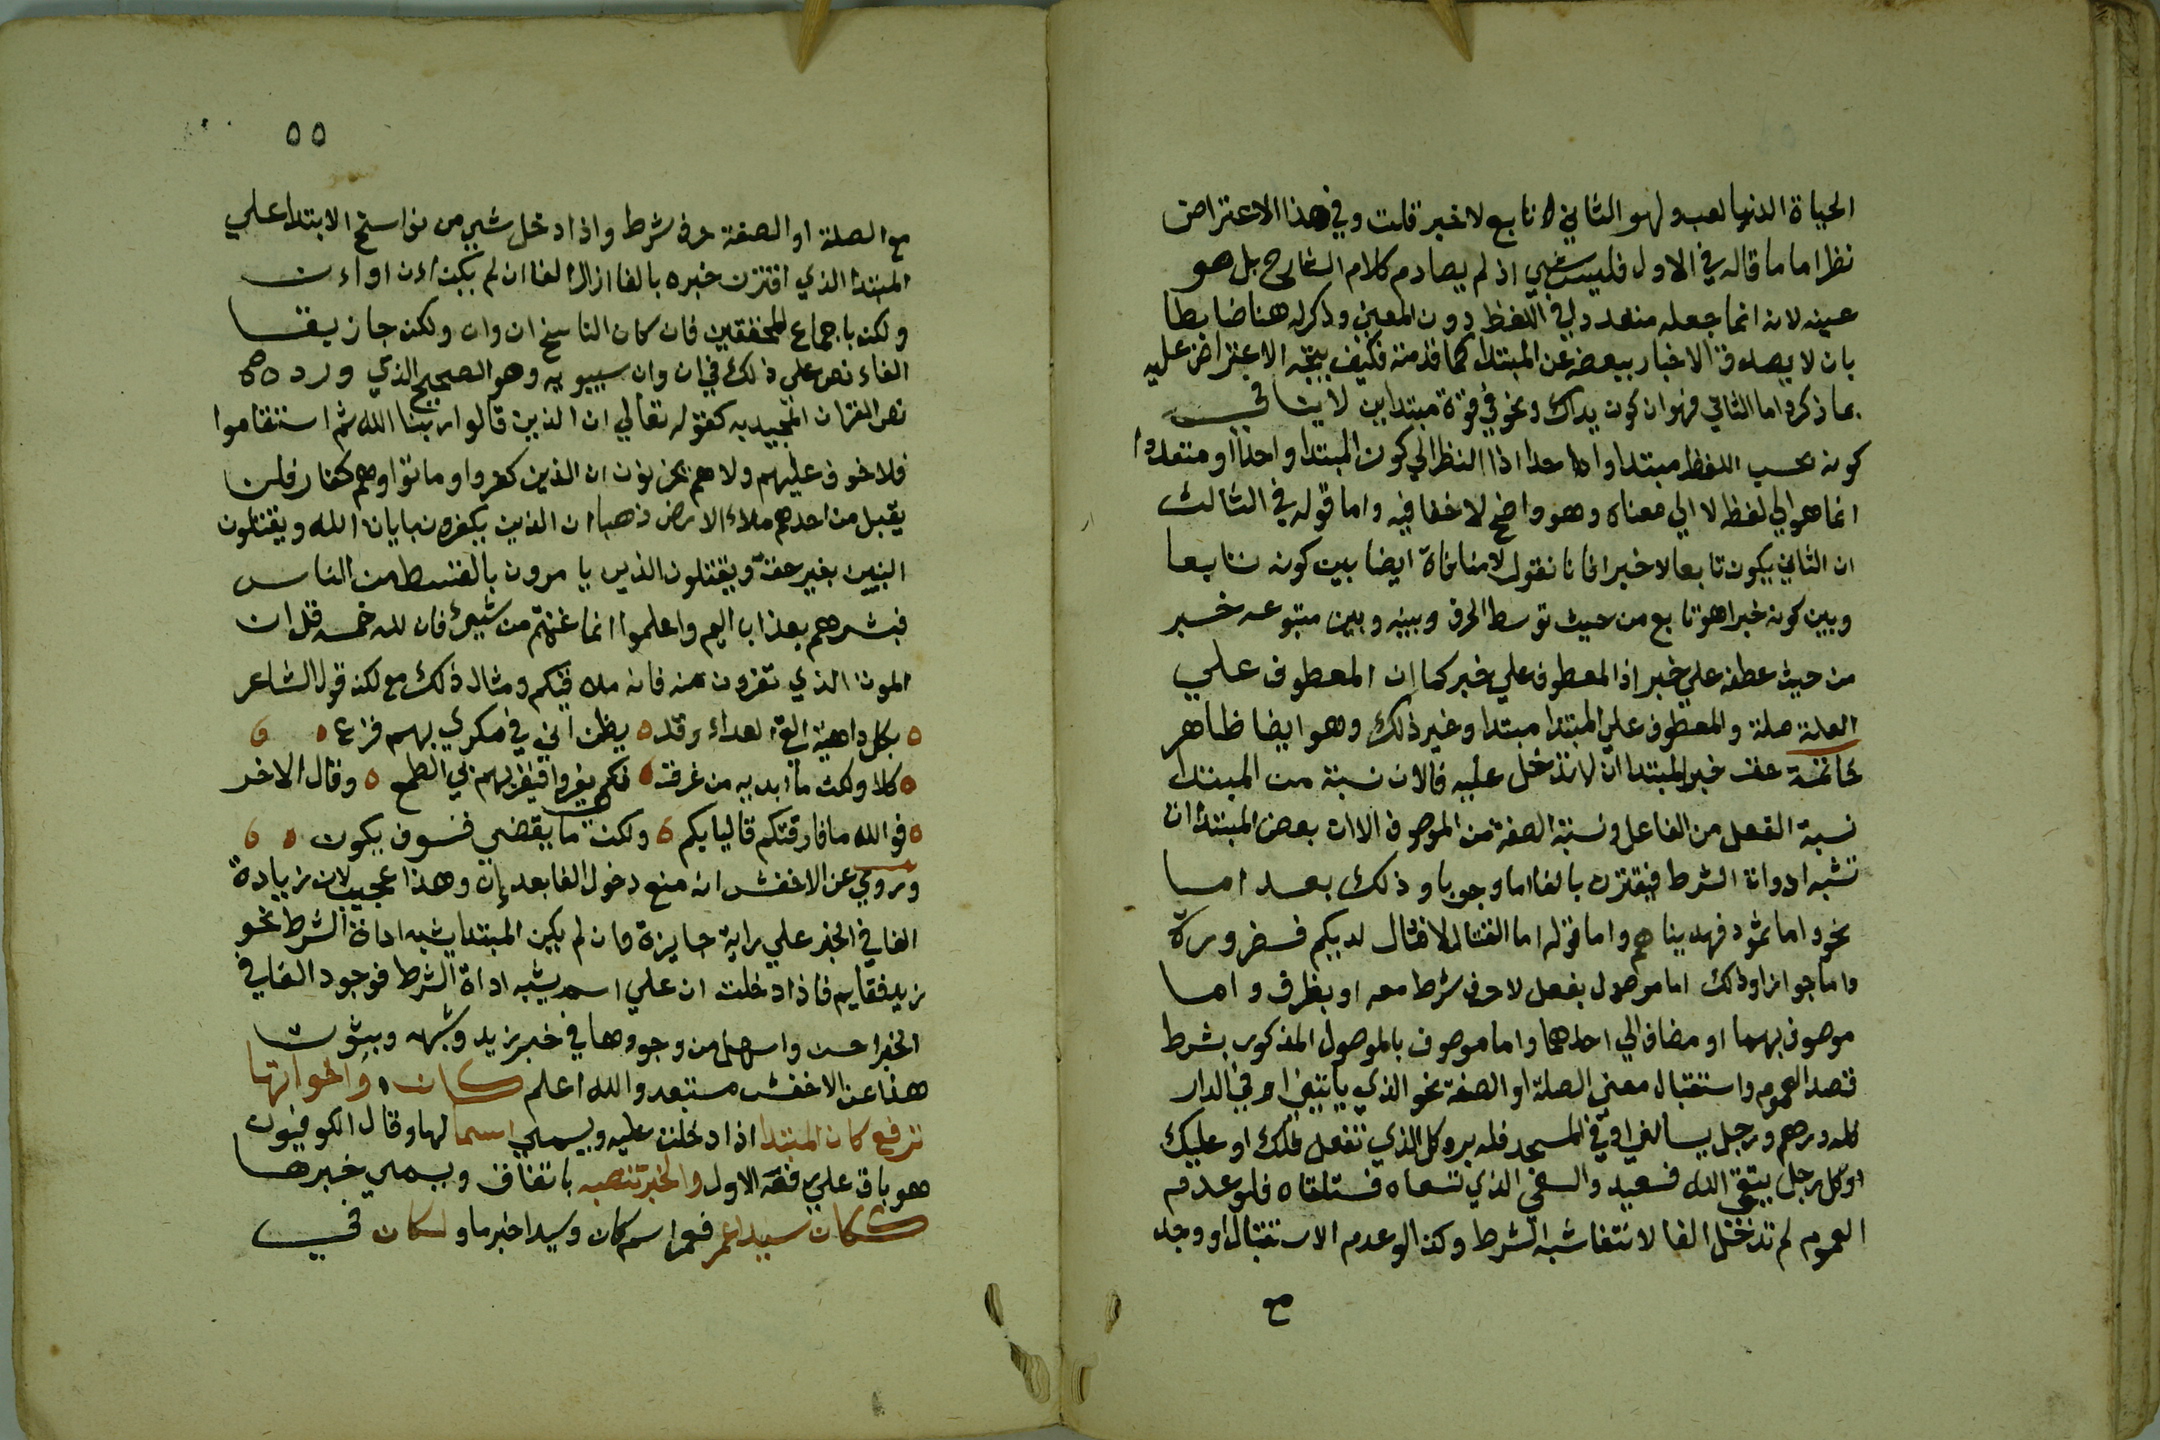 الحياة الدنيا لعب ولهو الثاني تابع لا خبر قلت وفي هذا الاعتراض
نظر اما ما قاله في الاول فليس بشي اذ لم يصادم كلام الشارح بل هو
عينه لانه انما جعله متعدد في اللفظ دون المعني وذكر له هنا ضابطا
بان لا يصدق الاخبار ببعضه عن المبتدا كما قدمته فكيف يتجه الاعتراض عليه
بما ذكره اما الثاني فهو ان كون يداك ونحوه في قوة مبتداين لا ينافي
كونه بحسب اللفظ مبتدا واحدا اذ النظر الي كون المبتدا واحدا او متعددا
انما هو الي لفظه لا الي معناه وهو واضح لا خفا فيه واما قوله في الثالث
ان الثاني يكون تابعا لا خبرا فانا نقول لا منافاة ايضا بين كونه تابعا
وبين كونه خبرا هو تابع من حيث توسط الحرف وبينه وبين متبوعه خبر
من حيث عطفه علي خبر اذ المعطوف علي خبر كما ان المعطوف علي
الصلة صلة والمعطوف علي المبتدا مبتدا وغير ذلك وهو ايضا ظاهر
خاتمة حق خبر المبتدا ان لا تدخل عليه فالان نسبة من المبتدا
نسبة الفعل من الفاعل ونسبة الصفة من الموصوف الا ان بعض المبتدات
تشبه ادوات الشرط فيقترن بالفا اما وجوبا وذلك بعد اما
نحو واما ثمود فهديناهم واما قوله اما القتال لا قتال لديكم فضرورة
واما جوازا وذلك اما موصول بفعل لا حرف شرط معه او بظرف واما
موصوف بهما او مضاف الي احدهما واما موصوف بالموصول المذكور بشرط
قصد العموم واستقبال معني الصلة او الصفة نحو الذي ياتيني او في الدار
فله درهم ورجل يسالني او في المسجد فله بر وكل الذي تفعل فلك او عليك
او كل رجل يتق الله فسعيد والسعي الذي تسعاه فستلقاه فلو عدم
العموم لم تدخل الفا لانتفا شبه الشرط وكذا لو عدم الاستقبال او وجد
مع
٥٥
مع الصلة او الصفة حرف شرط واذا دخل شي من نواسخ الابتدا علي
المبتدا الذي اقترن خبره بالفا ازال الفا ان لم يكن ان او ان
ولكن باجماع المحققين فان كان الناسخ ان وان ولكن جاز بقا
الفاء نص علي ذلك في ان وان سيبويه وهو الصحيح الذي ورد
نص القران المجيد به كقوله تعالي ان الذين قالوا ربنا الله ثم استقاموا
فلا خوف عليهم ولا هم يحزنون ان الذين كفروا وماتوا وهم كفار فلن
يقبل من احدهم ملاء الارض ذهبا ان الذين يكفرون بايات الله ويقتلون
النبيين بغير حق ويقتلون الذين يامرون بالقسط من الناس
فبشرهم بعذاب اليم واعلموا انما غنمتم من شيء فان لله خمسه قل ان
الموت الذي تفرون منه فانه ملاقيكم ومثال ذلك مع لكن قول الشاعر
بكل داهية القي العداء وقد يظن اني في مكري بهم فزاع
كلا ولكن ما ابديه من فرق فكم يغروا فيغريهم بي الطمع وقال الاخر
فوالله ما فارقتكم قاليا لكم ولكن ما يقضي فسوف يكون
وروي عن الاخفش انه منع دخول الفا بعد ان وهذا عجيب لان زيادة
الفا في الخبر علي رايه جايزة وان لم يكن المبتدا يشبه اداة الشرط نحو
زيد فقايم فاذا دخلت ان علي اسم يشبه اداة الشرط فوجود الفا في
الخبر احسن واسهل من وجودها في خبر زيد وشبهه وثبوت
هذا عن الاخفش مستبعد والله اعلم كان واخواتها
ترفع كان المبتدا اذا دخلت عليه ويسمي اسما لها وقال الكوفيون
هو باق علي رفعه الاول والخبر تنصبه باتفاق ويسمي خبرها
ككان سيدا عمر فعمر اسم كان وسيدا خبر ما و لكان في